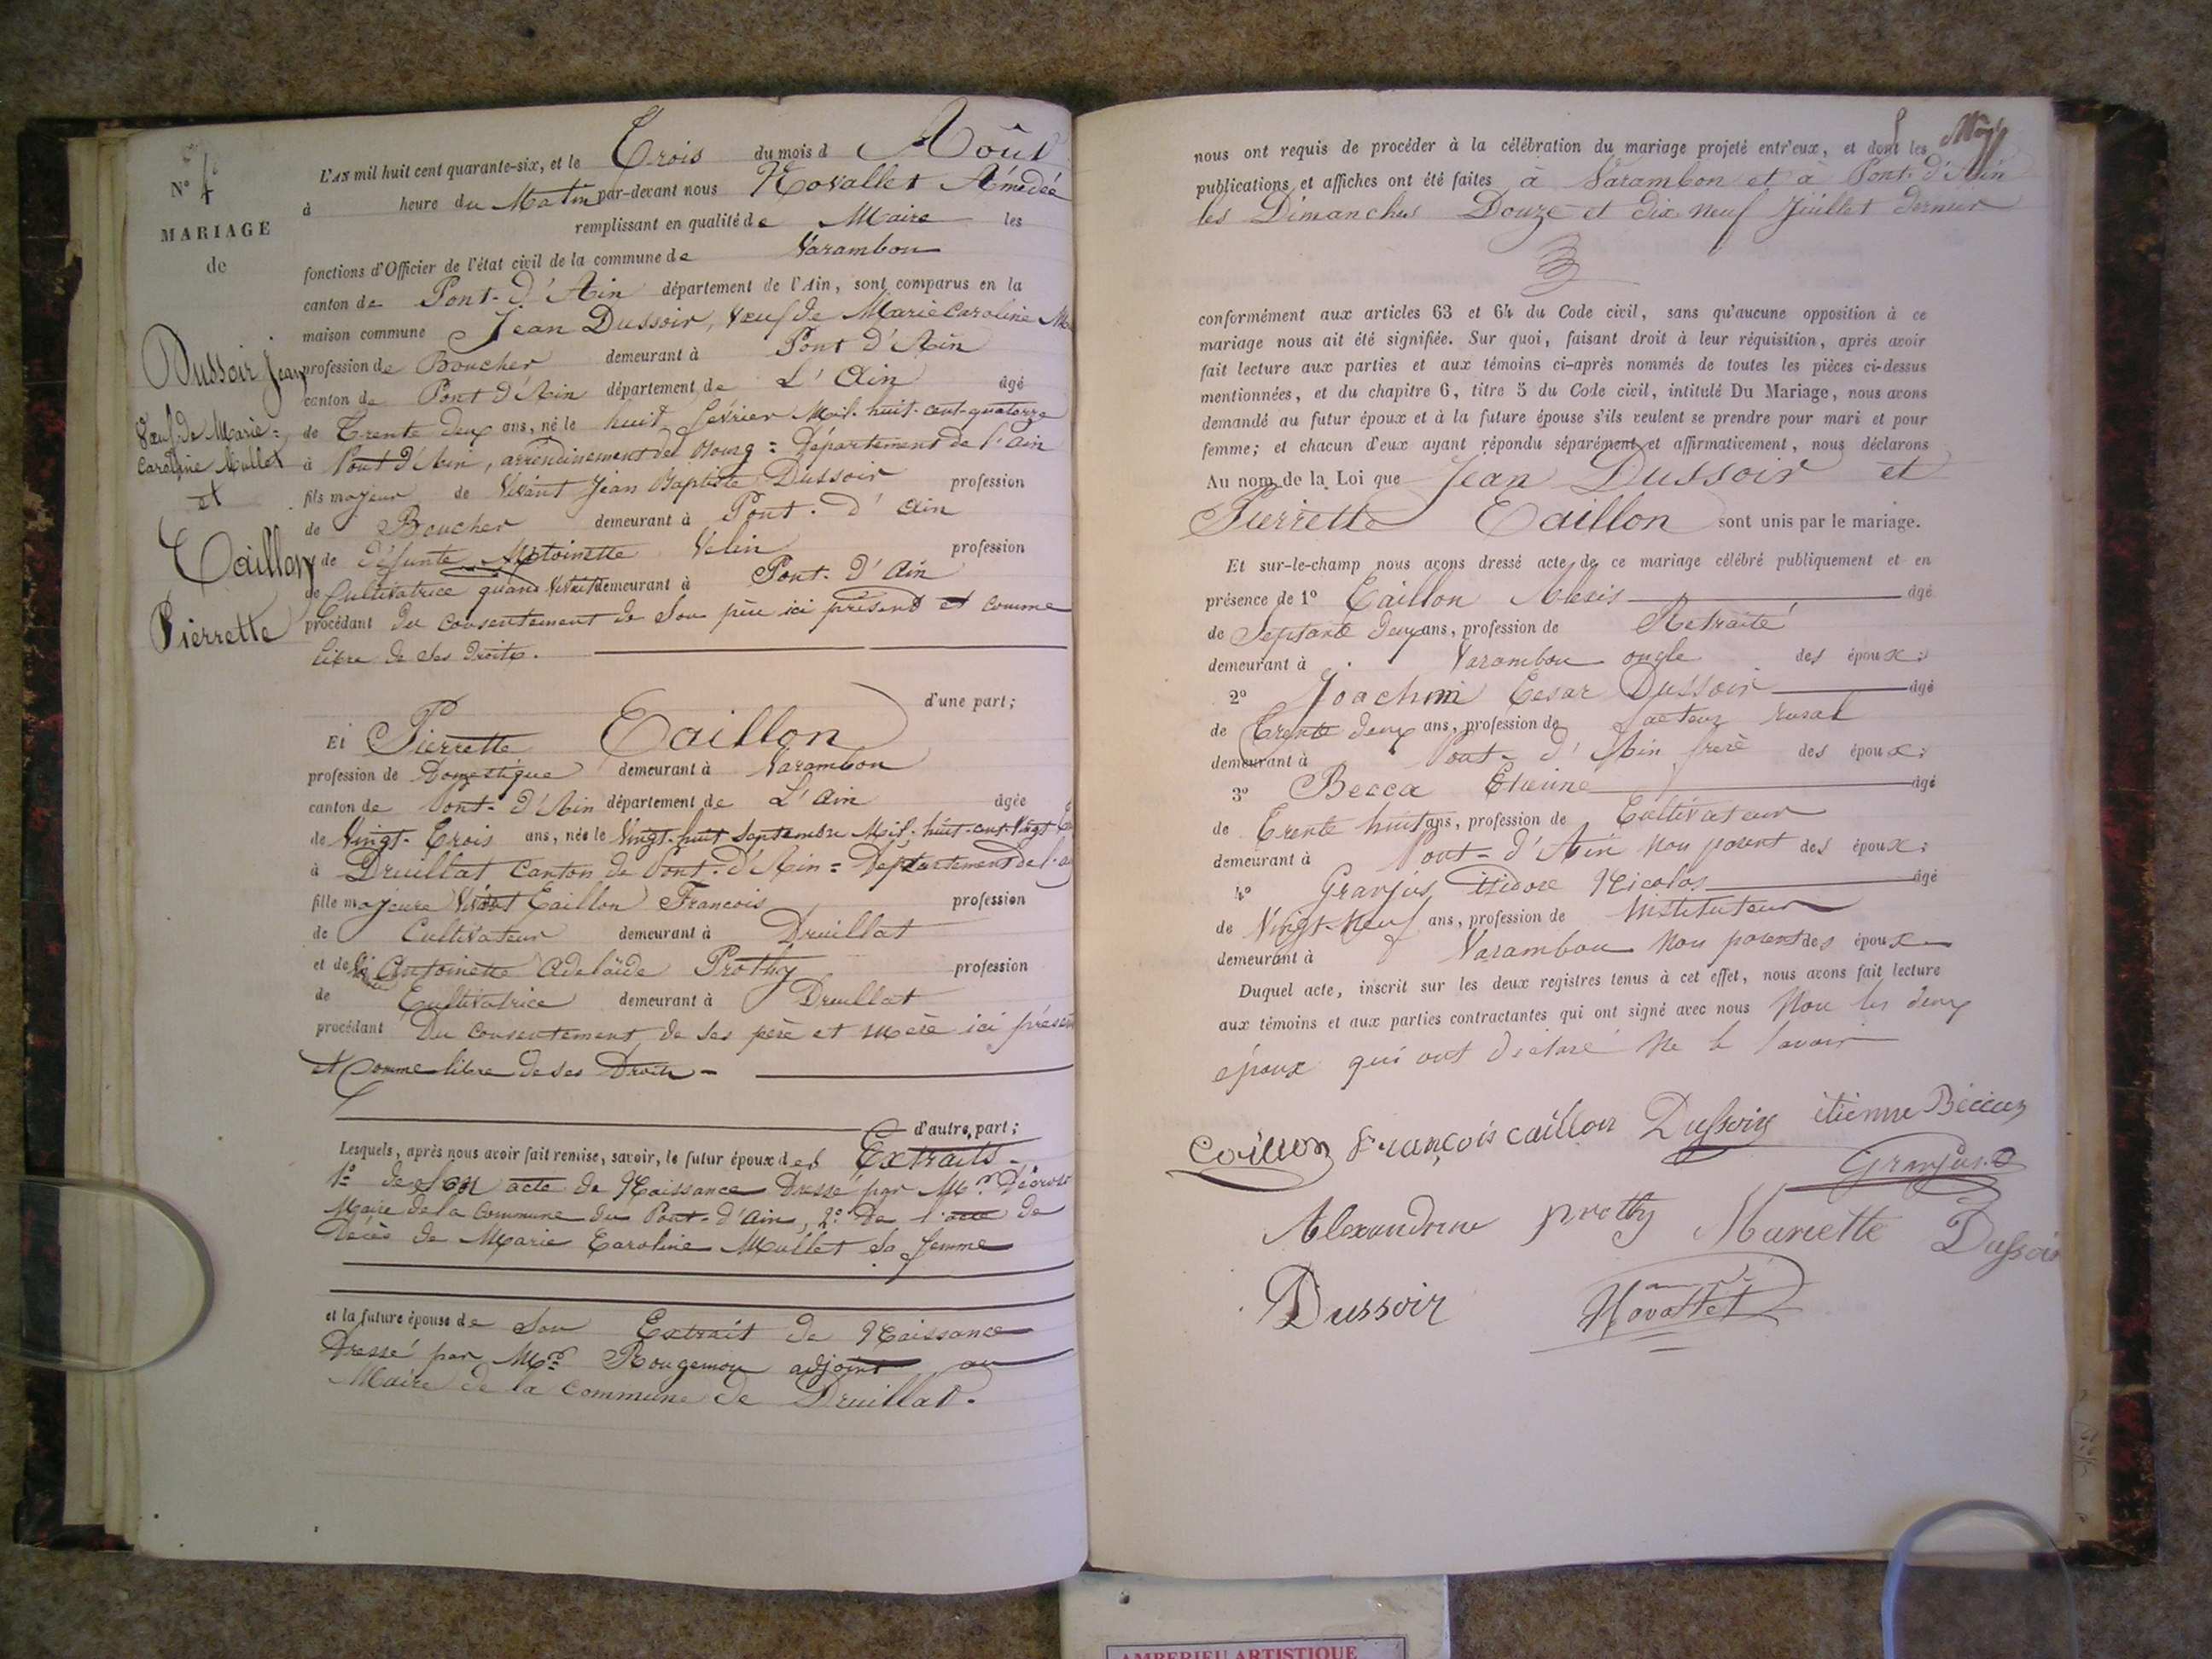 N° 4
MARIAGE
de
Dussoir Jean
Veuf de Marie =
Caroline Mullet
et
Caillon
Pierrette
L'AN mil huit cent quarante-six, et le Trois du mois d Août
à heure du Matin par-devant nous Novallet Amédée
remplissant en qualité de Maire les
fonctions d'Officier de l'état civil de la commune de Varambon
canton de Pont-d'Ain département de l'Ain, sont comparus en la
maison commune Jean Dussoir, Veuf de Marie Caroline
profession de Boucher demeurant à Pont d'Ain
canton de Pont d'Ain département de L'Ain âgé
de Trente deux ans, né le huit fevrier Mil-huit-cent-quatorze
à Pont d'Ain, arrondissement de Bourg = Département de l'Ain
fils majeur de Vivant Jean Baptiste Dussoir profession
de Boucher demeurant à Pont-d'Ain
de défunte Antoinette Velin profession
de Cultivatrice quand vivait demeurant à Pont-d'Ain
procédant du consentement de Son père ici présent et comme
libre de ses droits.
d'une part;
Et Pierrette Caillon
profession de Domestique demeurant à Varambon
canton de Pont-d'Ain département de L'Ain âgée
de Vingt-Trois ans, née le Vingt-huit Septembre Mil-huit-cent-Vingt
à Druillat Canton de Pont-d'Ain = Département de l'
fille majeure Vivant Caillon Francois profession
de Cultivateur demeurant à Druillat
et de Antoinette Adelaïde Prothy profession
de Cultivatrice demeurant à Druillat
procédant Du consentement de ses père et mère ici
et Comme libre de ses Droits -
d'autre part;
Lesquels, après nous avoir fait remise, savoir, le futur époux des Extraits
1° de son acte de Naissance Dressé par Mr
Maire de la Commune du Pont-d'Ain, 2° De l'acte de
Décès de Marie Caroline Mullet sa femme
et la future épouse de Son Extrait de Naissance
Dressé par Mr Rougemon adjoint au
Maire de la Commune de Druillat.
nous ont requis de procéder à la célébration du mariage projeté entr'eux, et dont les
publications et affiches ont été faites à Varambon et à Pont-d'Ain
les Dimanches Douze et dix neuf Juillet dernier
conformément aux articles 63 et 64 du Code civil, sans qu'aucune opposition à ce
mariage nous ait été signifiée. Sur quoi, faisant droit à leur réquisition, après avoir
fait lecture aux parties et aux témoins ci-après nommés de toutes les pièces ci-dessus
mentionnées, et du chapitre 6, titre 5 du Code civil, intitulé Du Mariage, nous avons
demandé au futur époux et à la future épouse s'ils veulent se prendre pour mari et pour
femme; et chacun d'eux ayant répondu séparément et affirmativement, nous déclarons
Au nom de la Loi que Jean Dussoir et
Pierrette Caillon sont unis par le mariage.
Et sur-le-champ nous avons dressé acte de ce mariage célébré publiquement et en
présence de 1° Caillon Alexis âgé
de Septante deux ans, profession de Retraité
demeurant à Varambon oncle des époux;
2° Joachim Cesar Dussoir âgé
de Trente deux ans, profession de facteur rural
demeurant à Pont-d'Ain frere des époux;
3° Becca Etienne âgé
de Trente huit ans, profession de Cultivateur
demeurant à Pont-d'Ain non parent des époux;
4° Granjus isidore Nicolas âgé
de Vingt-Neuf ans, profession de instituteur
demeurant à Varambon non parent des époux
Duquel acte, inscrit sur les deux registres tenus à cet effet, nous avons fait lecture
aux témoins et aux parties contractantes qui ont signé avec nous Non les deux
époux qui ont déclaré ne le savoir
Caillon François caillon Dussoir étienne
Granjus
Alexandrine prothy Mariette Dussoir
Dussoir Novallet
AMBERIEU ARTISTIQUE